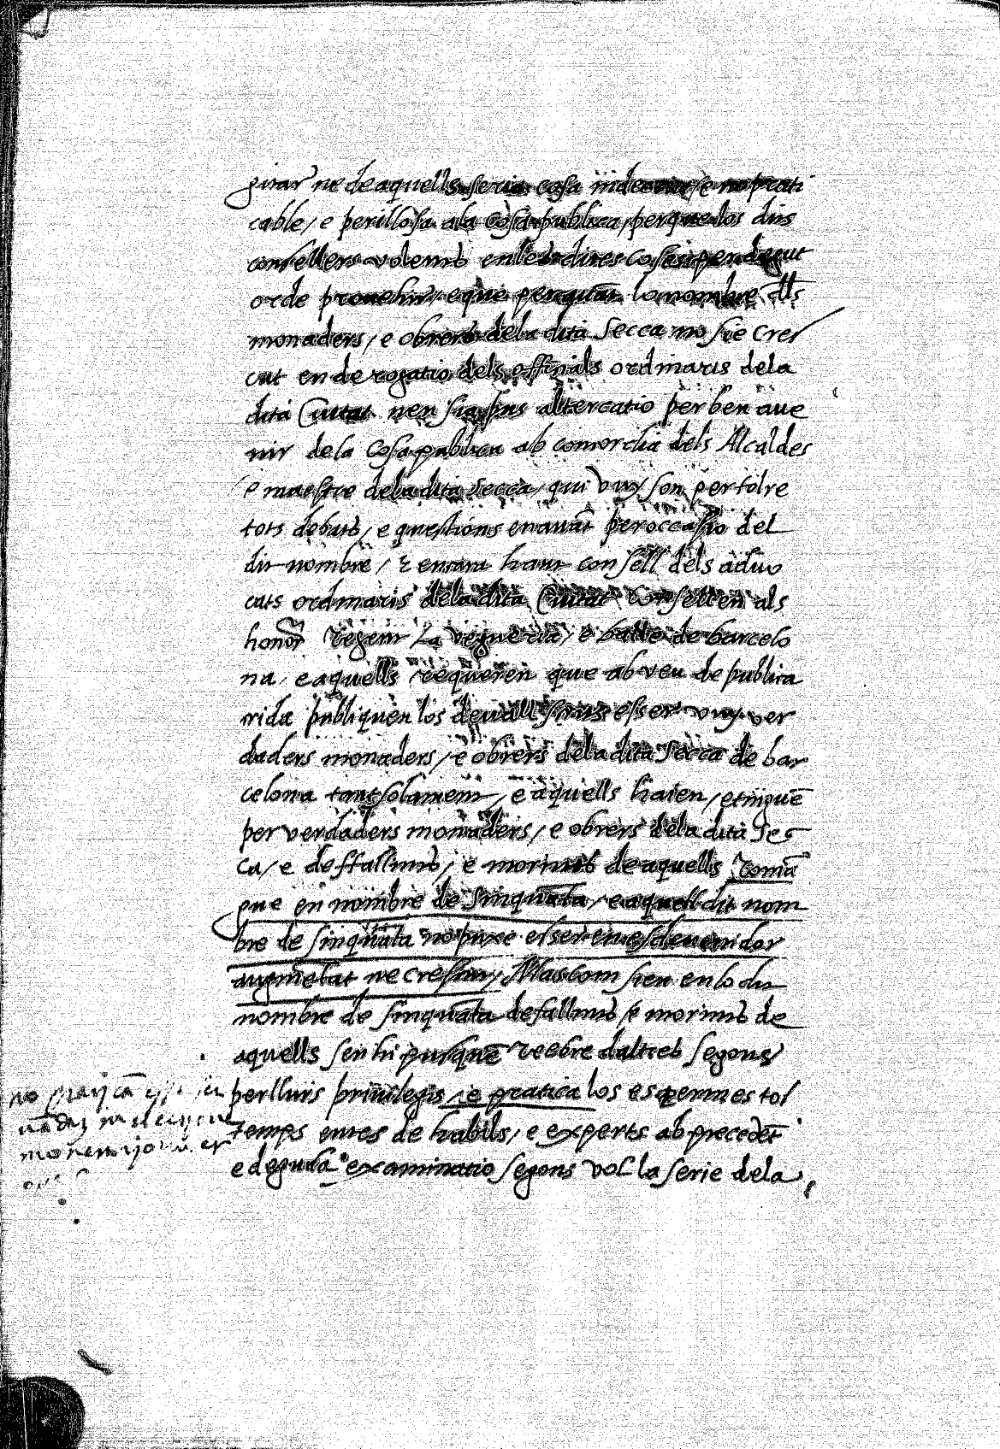 girar ne de aquells seria cosa indecent, e no prati
cable, e perillosa a la cosa publica, perque los dits
consellers volents en les dites coses in perdegut
orde provehir, e que per quāt lo nombre dlls
monaders, e obrers dela dita Secca no sie cres
cut en derogatio dels officials ordinaris dela
dita Ciutat nen sia fins altercatio per ben ave
nir dela Cosa publica ab concordia dels Alcaldes
e maestre dela dita Secca, qui vuy son per tolre
tots debats, e questions en avāt per occasio del
dit nombre, e encara haut consell dels advo
cats ordinaris dela dita Ciutat Consellen als
honor Regent La vegueria, e batle de barcelo
na, e aquells requeren que ab veu de publica
crida publiquen los devall scrits esser vuy ver
daders monaders, e obrers dela dita Secca de bar
celona tant solament, e aquells haien, e tinguē
per verdaders monaders, e obrers dela dita Sec
ca, e deffallints, e morints de aquells romā
gue en nombre de Sinquāta, e aquell dit nom
bre de sinquāta no puxe esser en esdevenidor
augmētat ne crescut, Mas com sien en lo dit
nombre de sinquāta defallints, e morints de
aquells sen hi pusquē reebre daltres segons
perlluis privilegis, e pratica los es permes tol
temps entes de habils, e experts ab precedēt
e deguda examinatio segons vol la serie dela